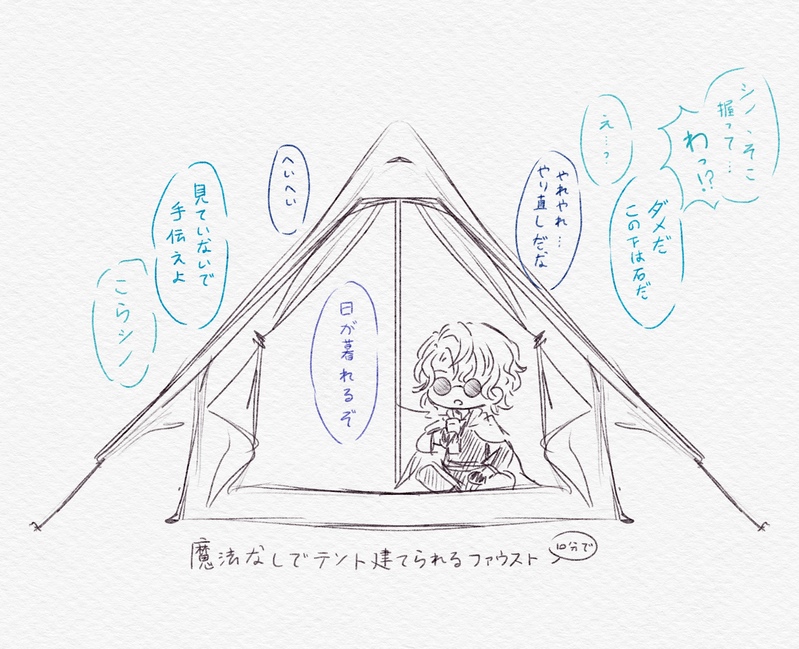 シノ、そこ
握って…
わっ!?
え…?
ダメだ
この下は石だ
やれやれ…
やり直しだな
へいへい
見ていないで
手伝えよ
こらシノ
日が暮れるぞ
魔法なしでテント建てられるファウスト
10分で